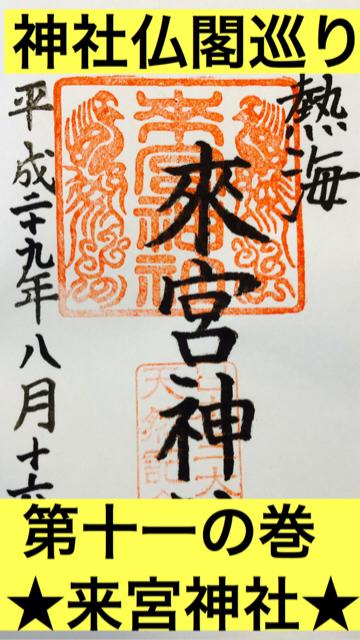 神社仏閣巡り
熱海
來宮神
平成二十九年八月十六
第十一の巻
★来宮神社★